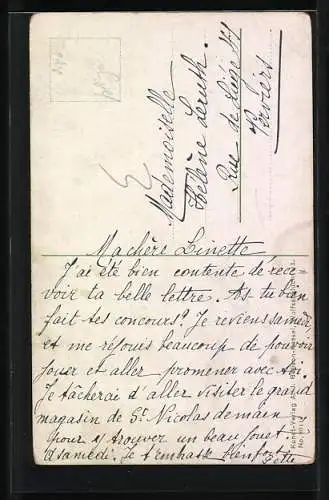 Mademoiselle
Hélène Leruth.
Rue de Liège 41
Verviers
Ma chère Linette
J'ai été bien contente de rece-
voir ta belle lettre. As tu bien
fait tes concours? Je reviens samedi
et me réjouis beaucoup de pouvoir
jouer et aller promener avec toi.
Je tâcherai d'aller visiter le grand
magasin de St Nicolas demain
pour y trouver un beau jouet.
à samedi. Je t'embrasse bien fort
Kunst-Verlag